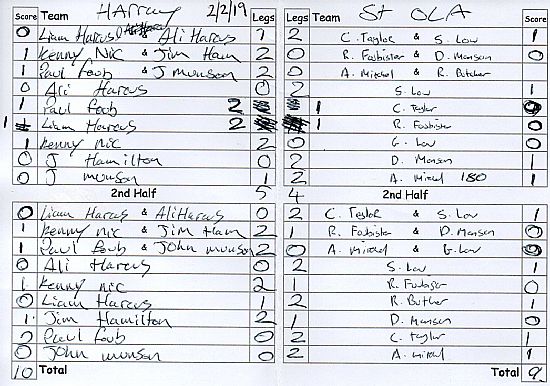 Score Team Harray 2/2/19 Legs Team St OLA Legs Score
0 Liam Harcus & Ali Harcus 1 2 C. Taylor & S. Low 1
1 Kenny Nic & Jim Ham 2 0 R. Forbister & D. Manson 0
1 Paul foub & J munson 2 0 A. Mitchel & R. Butcher 0
0 Ali Harcus 0 2 S. Low 1
1 Paul foub 2 1 C. Taylor 0
1 Liam Harcus 2 1 R. Forbister 0
1 Kenny nic 2 0 G. Low 0
0 J Hamilton 0 2 D. Manson 1
0 J munson 1 2 A. Mitchel 180 1
2nd Half 5 4 2nd Half
0 Liam Harcus & Ali Harcus 0 2 C. Taylor & S. Low 1
1 Kenny nic & Jim Ham 2 1 R. Forbister & D. Manson 0
1 Paul foub & JOhn munson 2 0 A. Mitchel & G. Low 0
0 Ali Harcus 0 2 S. Low 1
1 Kenny nic 2 1 R. Forbister 0
0 Liam Harcus 1 2 R. Buther 1
1 Jim Hamilton 2 1 D. Manson 0
2 Paul foub 0 2 C. Taylor 1
0 JOhn munson 0 2 A. Mitchel 1
10 Total Total 9